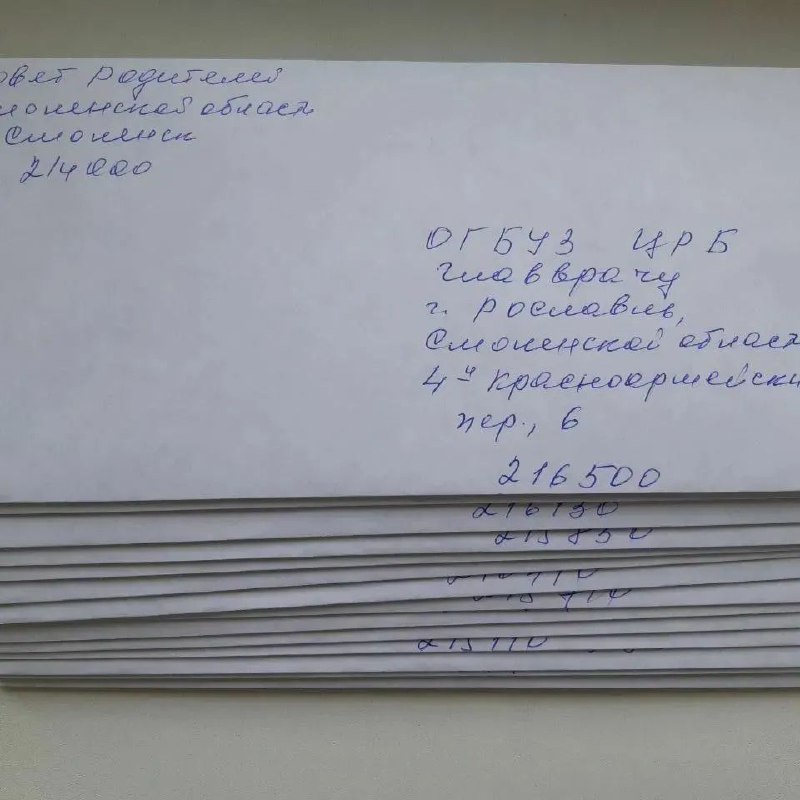 овет Родителей
моленской област
Смоленск
214000
ОГБУЗ ЦРБ
главврачу
г. Рославль,
Смоленской област
4й Красноармейски
пер., 6
216500
216130
215850